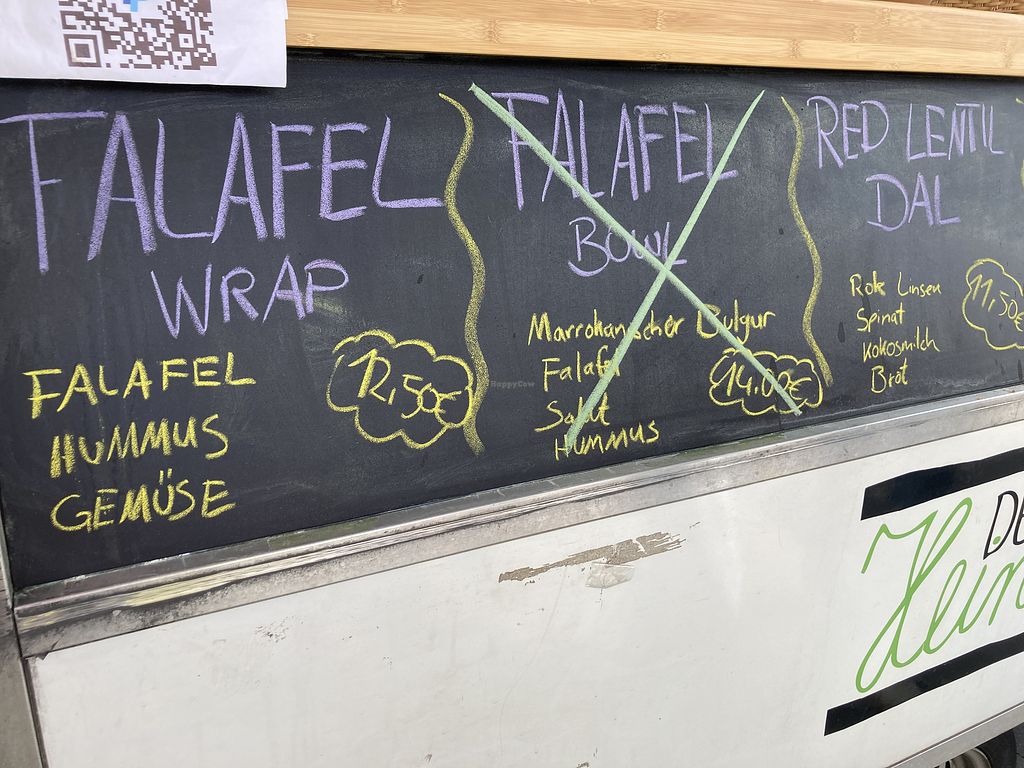 FALAFEL
WRAP
FALAFEL
HUMMUS
GEMÜSE
12,50€
FALAFEL
BOWL
Marrokanischer Bulgur
Falafel
Salat
HUMMUS
14.00€
RED LENTIL
DAL
Rote Linsen
Spinat
Kokosmilch
Brot
11,50€
HappyCow